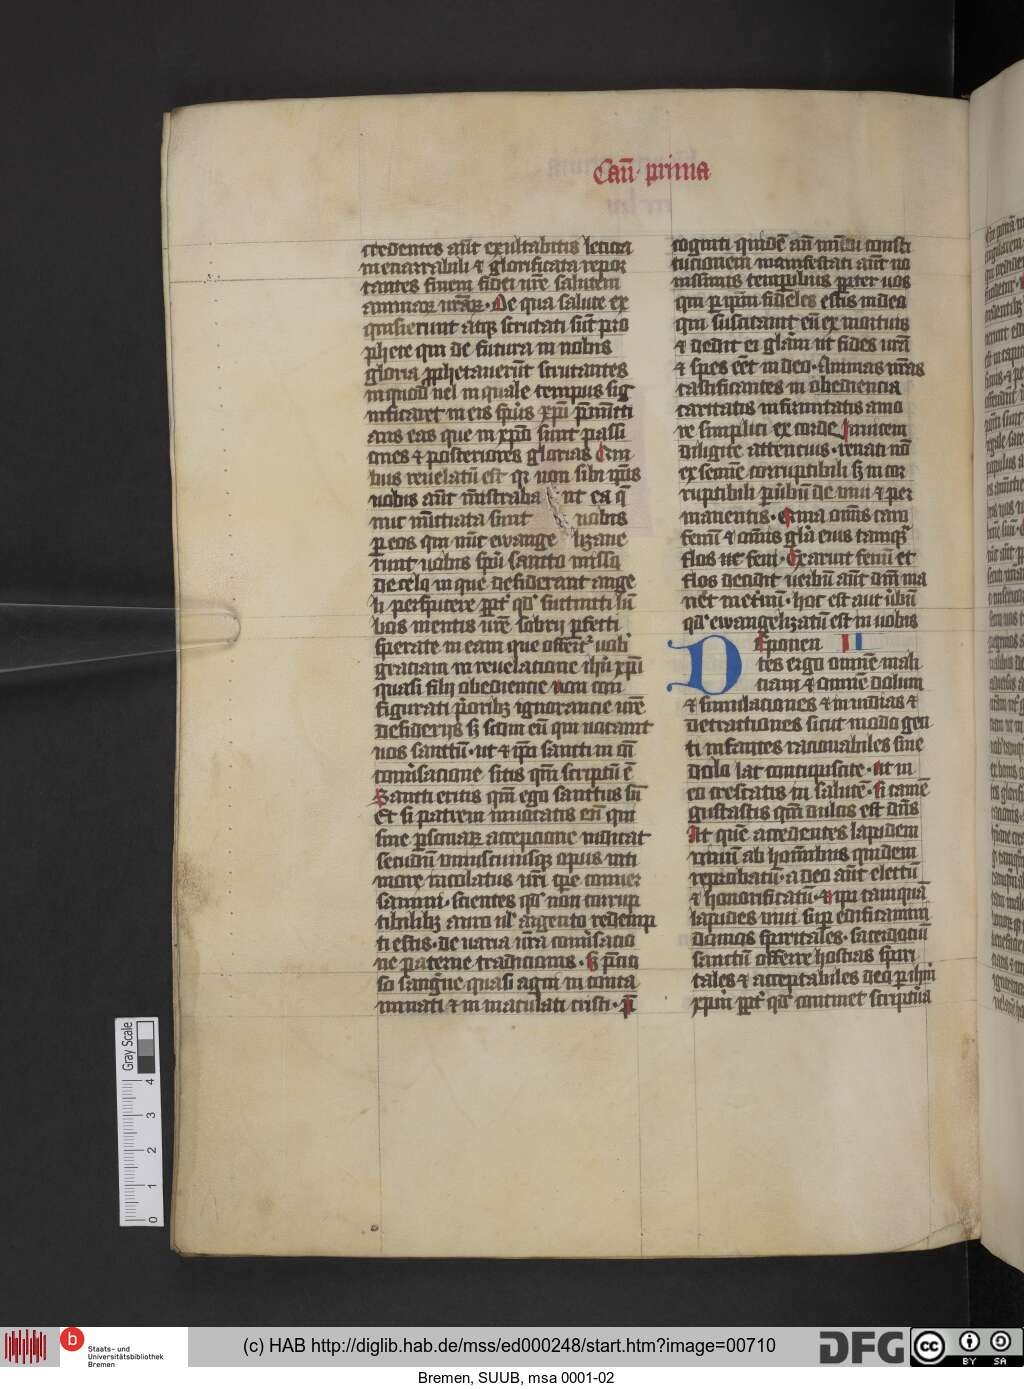 Can̄· prima
credentes aūt exultabitis leticia
inenarrabili ⁊ glorificata repor
tantes finem fidei vr̄e salutem
animaꝝ vr̄aꝝ· De qua salute ex
quisierunt atqꝫ scrutati sūt pro
phete qui de futura in nobis
gloria ꝓphetauerūt scrutantes
in quod vel in quale tempus sig
nificaret in eis sp̄us xp̄i p̄nūcti
ans eas que in xp̄o sunt passi
ones ⁊ posteriores glorias Qui
bus reuelatū est qꝛ non sibi ip̄is
uobis aūt mīstraba nt ea q̄
nūc nūctiata sunt uobis
ꝑ eos qui nūt ewange lizaue
runt uobis sp̄u sancto misso
de celo in que desiderant ange
li perspicere ꝓpt̄ qd̄ succincti lū
bos mentis vr̄e sobrij ꝑfecti
sperate in eam que offert̄ uobˀ
graciam in reuelatione ih̄u xp̄i
quasi filij obediencie non con
figurati p̄oribꝫ ignorancie vr̄e
desiderijs sꝫ scdm eū qui vocauit
uos sanctū· ut ⁊ ip̄i sancti in oī
conūsacione sitis qm̄ scriptū ē
Sancti eritis qm̄ ego sanctus sū
Et si patrem inuocatis eū qui
sine ꝑsonaꝝ accepcione iudicat
secudū vniuscuiusqꝫ opus in ti
more incolatus vr̄i
samini· scientes qd̄ non corrup
tibilibꝫ auro ul̄ argento redemp
ti estis· de uana vr̄a conūsacio
ne paterne tradicionis· Sꝫ p̄cio
so sangwine quasi agni in conta
minati ⁊ in maculati cristi· p̄
cogniti quidē an̄ mūdi consti
tucionem manifestati aūt no
uissimis temporibus ꝓpter uos
qui ꝑ ip̄m fideles estis in deo
qui suscitauit eū ex mortuis
⁊ dedit ei glam̄ ut fides vr̄a
⁊ spes eēt in deo· Animas vr̄as
castificantes in obediencia
caritatis in firnitatis amo
re simplici ex corde Inuicem
diligite attencius· renati nō
ex semīe corruptibili sꝫ in cor
ruptibili ꝑ ūbū dei viui ⁊ per
manentis· Quia om̄is caro
fenū ⁊ om̄is glā eius tamqꝫ
flos ut feni· Exaruit fenū et
flos decidit uerbū aūt dn̄i ma
net in et̄nū· hoc est aut ūbū
qd̄ ewangelizatū est in uobis
Deponen II
tes ergo omnē mali
ciam ⁊ omnē dolum
⁊ simulaciones ⁊ inuidias ⁊
detractiones sicut modo geni
ti infantes racionabiles sine
dolo lac concupiscite· ut in
eo crescatis in salutē· si tamē
gustastis qm̄ dulcis est dn̄s
At quē accedentes lapidem
viuū ab hominibus quidem
reprobatū· a deo aūt electū
⁊ honorificatū· ⁊ ip̄i tamquā
lapides viui suꝑ edificamini
domos spiritales· sacerdociū
sanctū offerre hostias spiri
tales ⁊ acceptabiles deo ꝑ ih̄m
xp̄m ꝓpt̄ qd̄ continet scriptura
Gray Scale
4
3
2
1
0
Staats- und
Universitätsbibliothek
Bremen
(c) HAB http://diglib.hab.de/mss/ed000248/start.htm?image=00710
DFG
cc BY SA
Bremen, SUUB, msa 0001-02